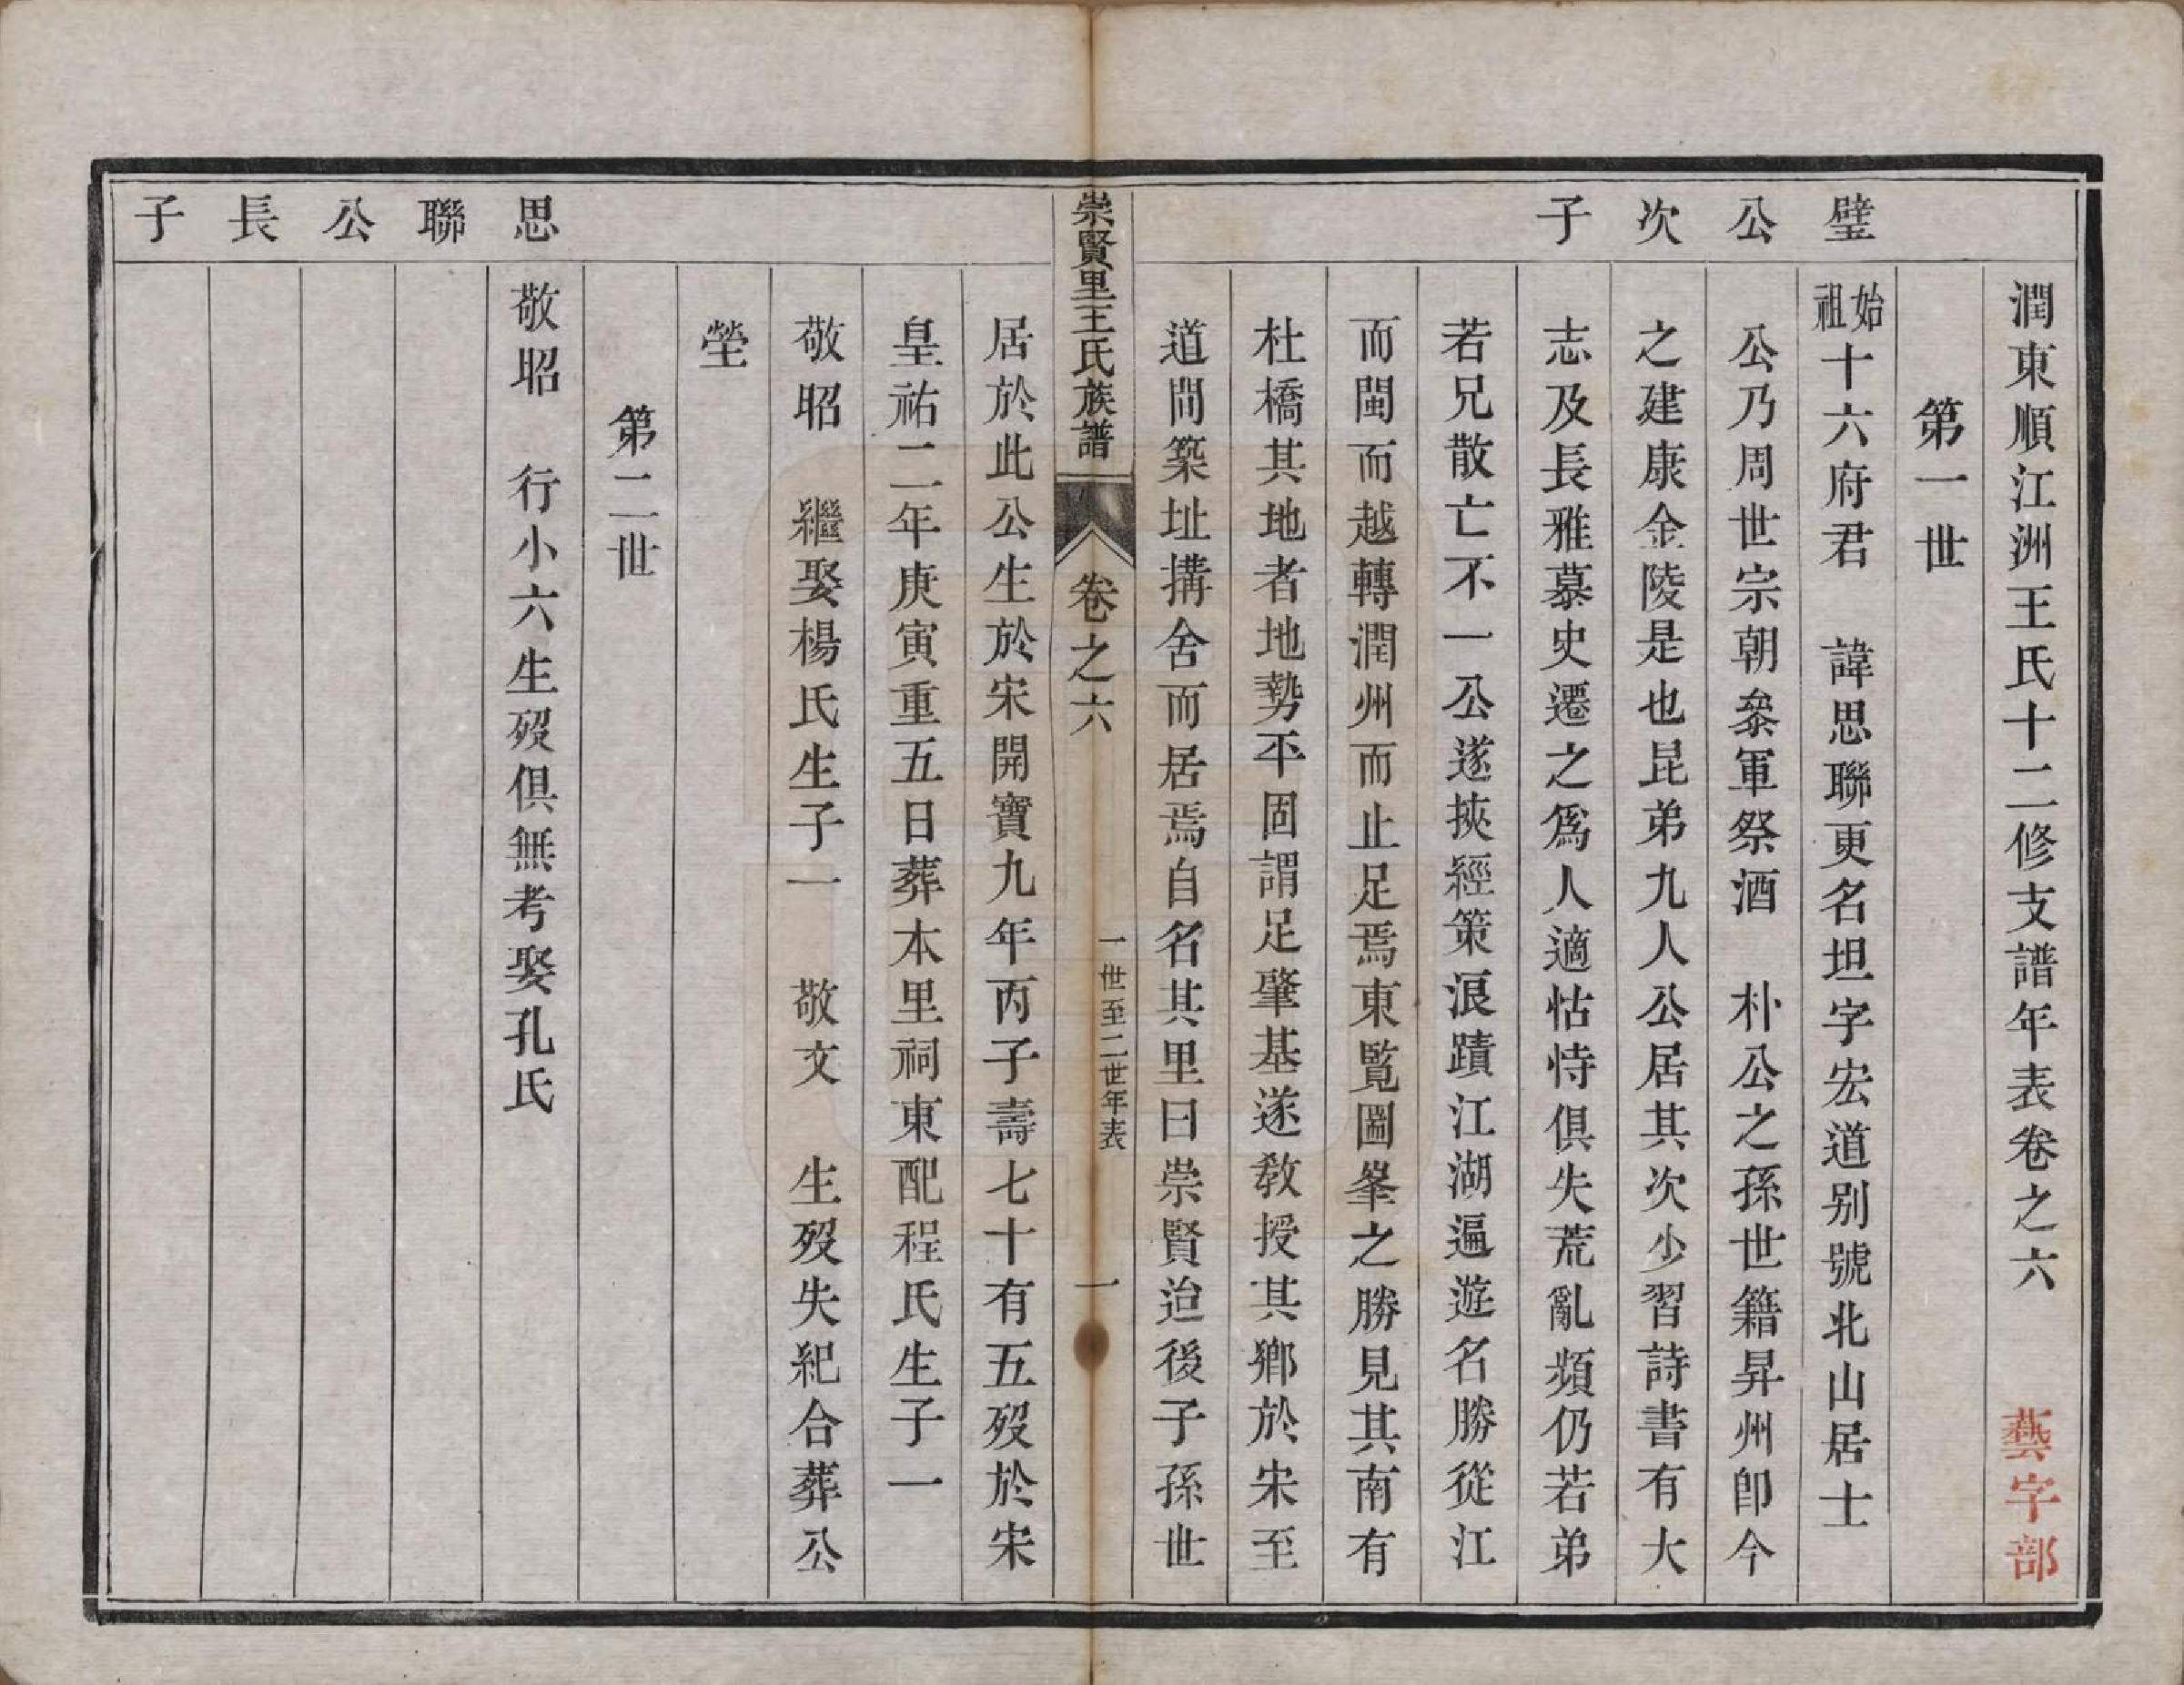 潤東順江洲王氏十二修支譜年表卷之六　藝字部
第一世
璧公次子
始祖十六府君　諱思聯更名坦字宏道别號北山居士
公乃周世宗朝叅軍祭酒　朴公之孫世籍昇州卽今
之建康金陵是也昆弟九人公居其次少習詩書有大
志及長雅慕史遷之爲人適怙恃俱失荒亂頻仍若弟
若兄散亡不一公遂挾經策浪蹟江湖遍遊名勝從江
而閩而越轉潤州而止足焉東覧圌峯之勝見其南有
杜橋其地者地勢平固謂足肇基遂敎授其鄕於宋至
道間築址搆舍而居焉自名其里曰崇賢迨後子孫世
崇賢里王氏族譜　卷之六　一世至二世年表　一
居於此公生於宋開寶九年丙子壽七十有五歿於宋
皇祐二年庚寅重五日葬本里祠東配程氏生子一
敬昭　繼娶楊氏生子一　敬文　生歿失紀合葬公
塋
第二世
思聯公長子
敬昭　行小六生歿俱無考娶孔氏